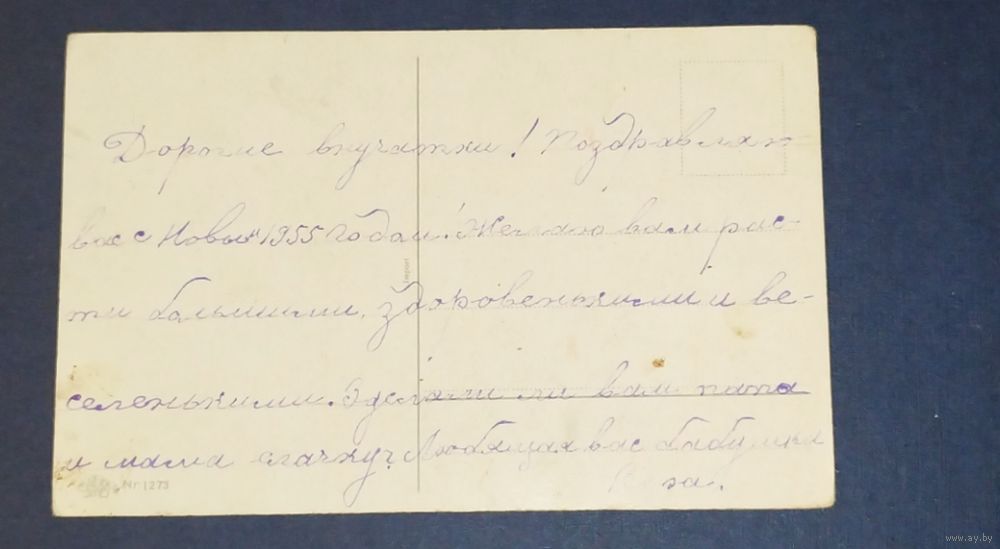 Дорогие внучатки! Поздравляю
вас с Новым 1955 годом! Желаю вам рас-
ти большими, здоровенькими и ве-
селенькими. Сделали ли вам папа
и мама ёлачку? Любящая вас бабушка
Роза.
Import
Nr 1273
www.ay.by